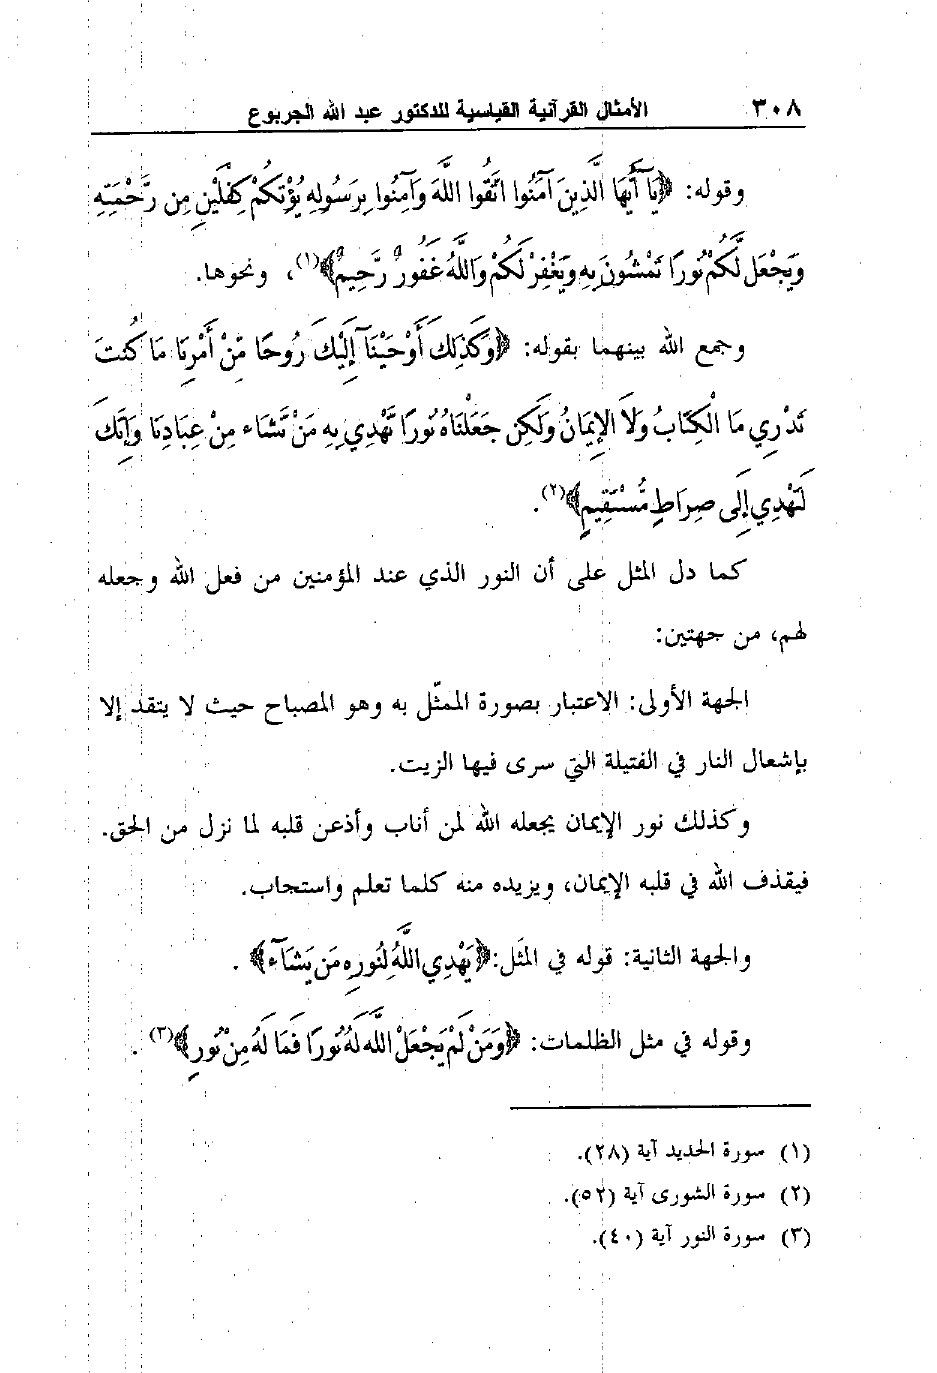 ٣٠٨ الأمثال القرآنية القياسية للدكتور عبد الله الجربوع
وقوله: ﴿يَآ أَيُّهَا الَّذِينَ آمَنُوا اتَّقُوا اللَّهَ وَآمِنُوا بِرَسُولِهِ يُؤْتِكُمْ كِفْلَيْنِ مِن رَّحْمَتِهِ
وَيَجْعَل لَّكُمْ نُورًا تَمْشُونَ بِهِ وَيَغْفِرْ لَكُمْ وَاللَّهُ غَفُورٌ رَّحِيمٌ﴾(١)، ونحوها.
وجمع الله بينهما بقوله: ﴿وَكَذَلِكَ أَوْحَيْنَآ إِلَيْكَ رُوحًا مِّنْ أَمْرِنَا مَا كُنتَ
تَدْرِي مَا الْكِتَابُ وَلاَ الإِيمَانُ وَلَكِن جَعَلْنَاهُ نُورًا نَّهْدِي بِهِ مَنْ نَّشَاء مِنْ عِبَادِنَا وَإِنَّكَ
لَتَهْدِي إِلَى صِرَاطٍ مُّسْتَقِيمٍ﴾(٢).
كما دل المثل على أن النور الذي عند المؤمنين من فعل الله وجعله
لهم، من جهتين:
الجهة الأولى: الاعتبار بصورة الممثّل به وهو المصباح حيث لا يتقد إلا
بإشعال النار في الفتيلة التي سرى فيها الزيت.
وكذلك نور الإيمان يجعله الله لمن أناب وأذعن قلبه لما نزل من الحق.
فيقذف الله في قلبه الإيمان، ويزيده منه كلما تعلم واستجاب.
والجهة الثانية: قوله في المثَل: ﴿يَهْدِي اللَّهُ لِنُورِهِ مَن يَشَآء﴾ .
وقوله في مثل الظلمات: ﴿وَمَنْ لَمْ يَجْعَلْ اللَّهُ لَهُ نُورًا فَمَا لَهُ مِنْ نُورٍ﴾(٣) .
(١) سورة الحديد آية (٢٨).
(٢) سورة الشورى آية (٥٢).
(٣) سورة النور آية (٤٠).